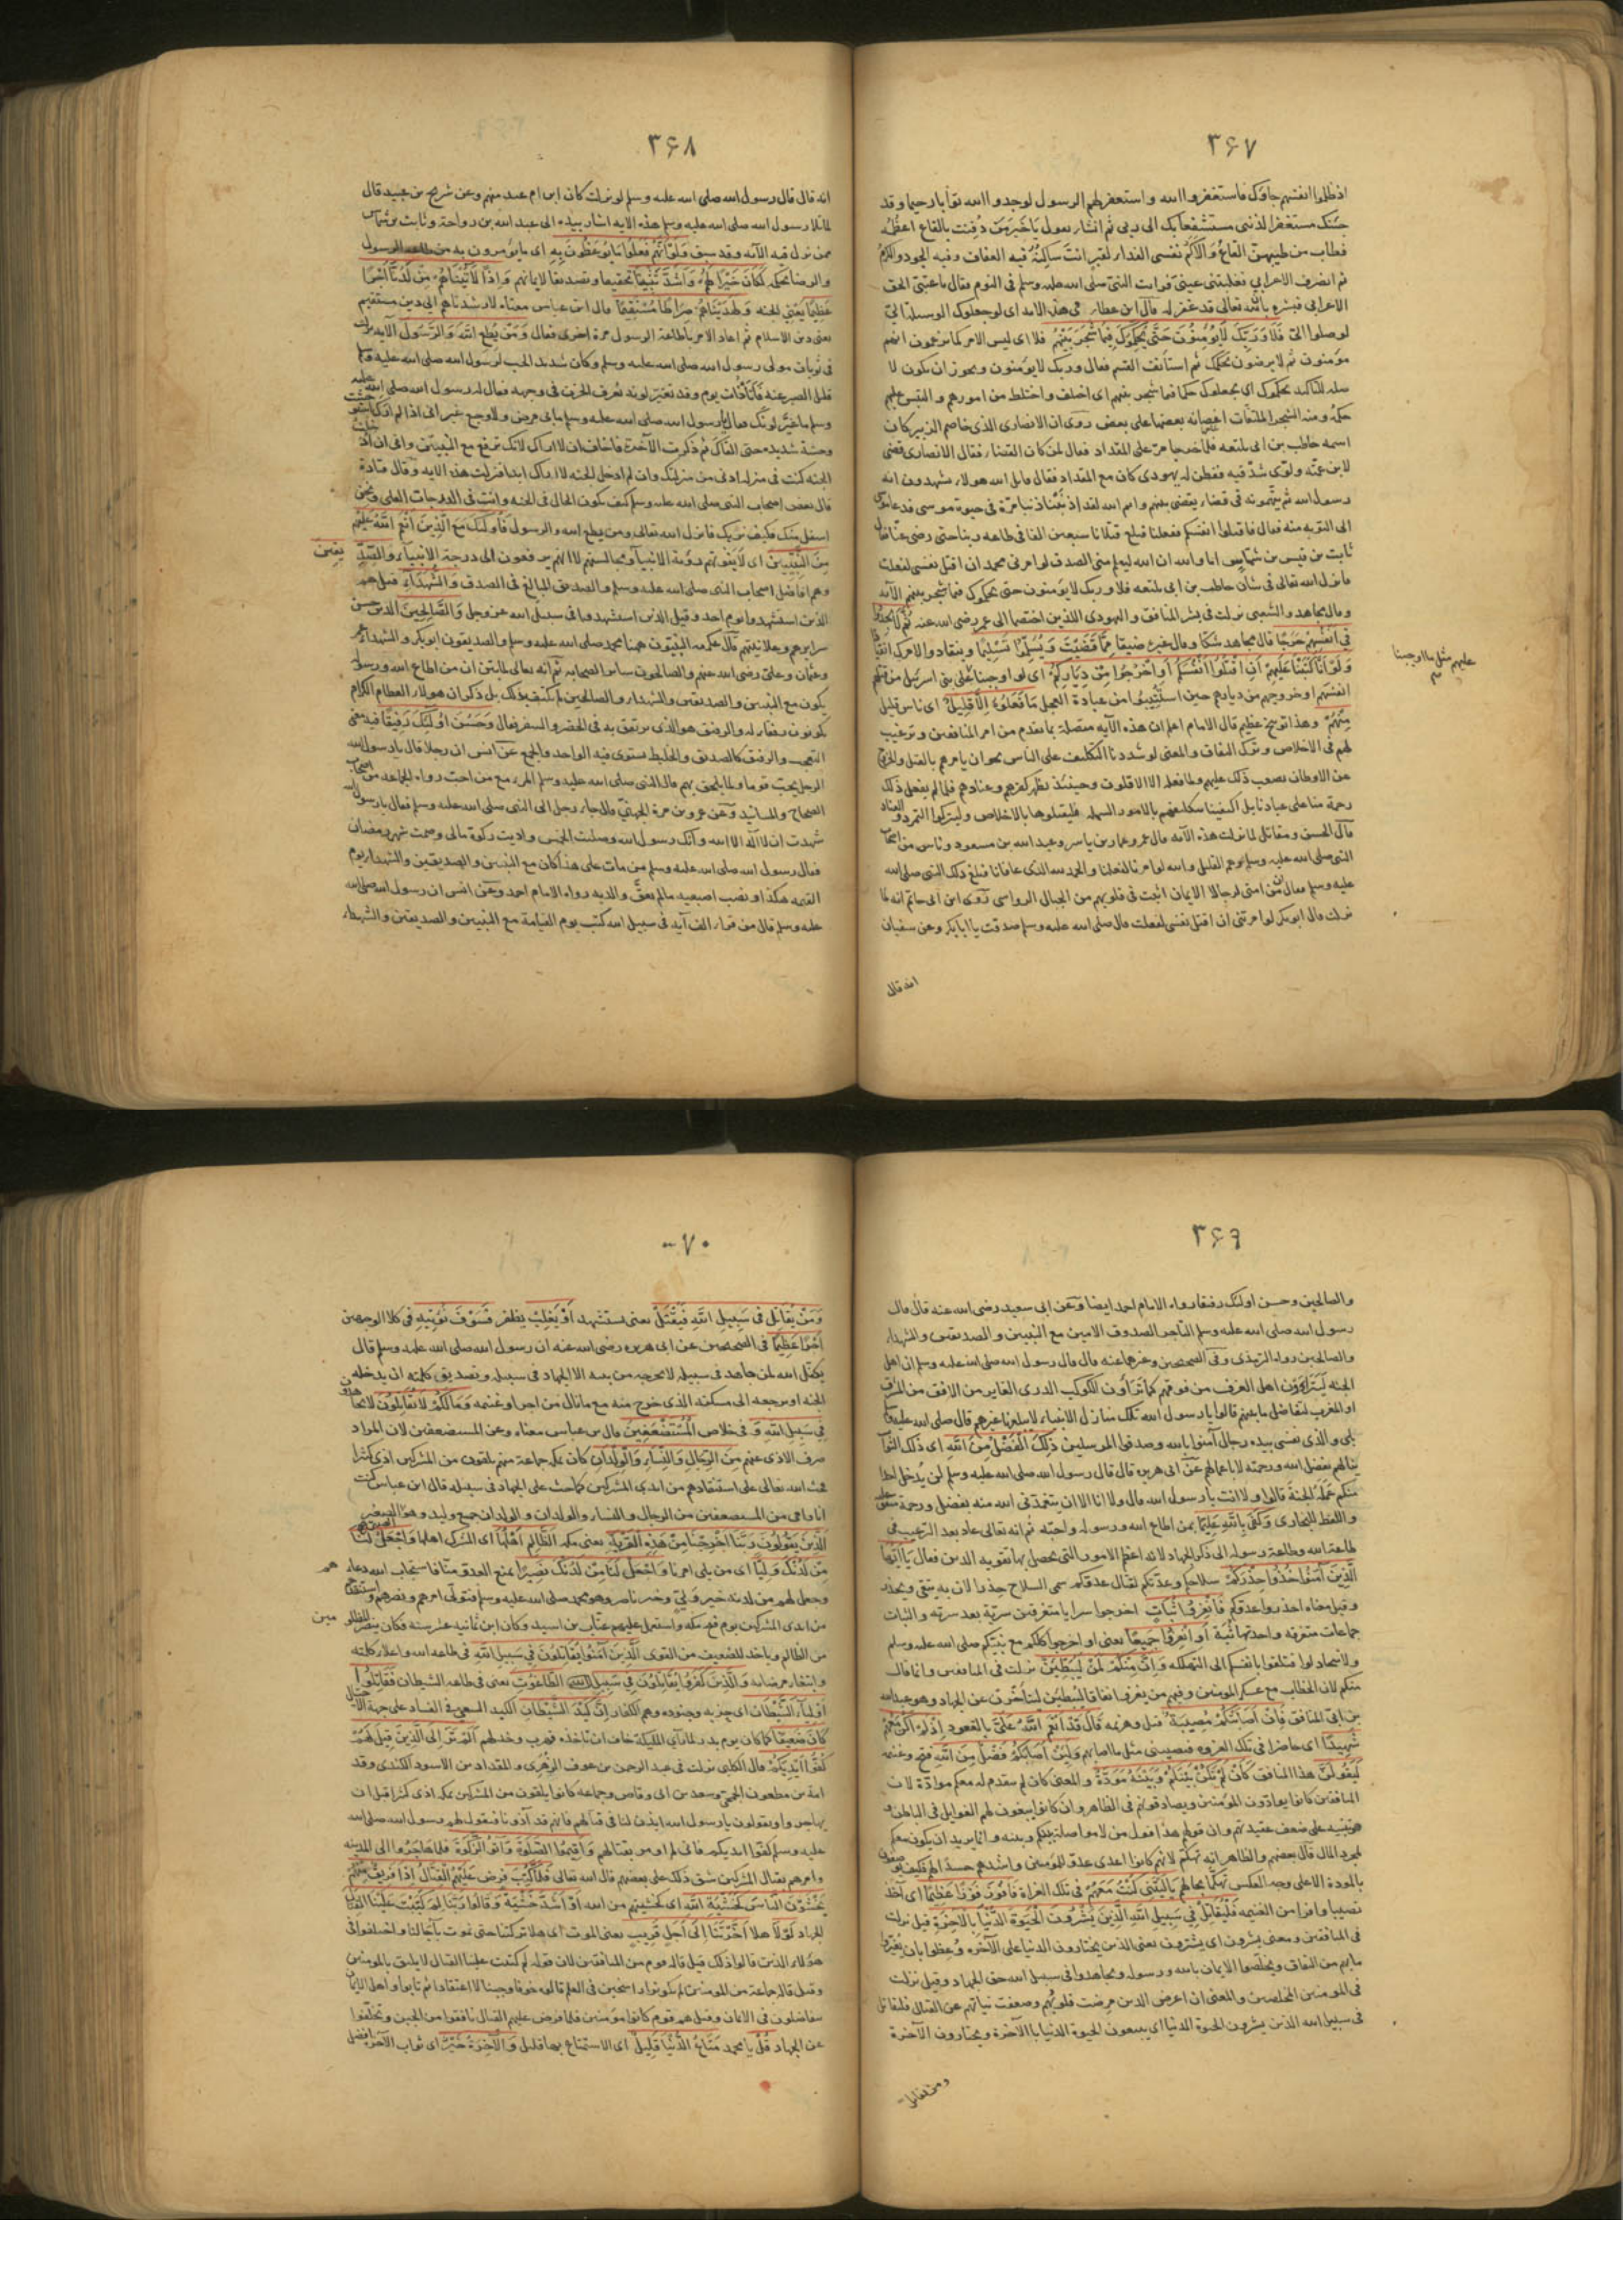 ٣۶٧
اذ ظلموا انفسهم جاؤك فاستغفروا الله واستغفر لهم الرسول لوجدوا الله توابا رحيما وقد
جئتك مستغفرا لذنبى مستشفعا بك الى ربى ثم انشاء يقول يَا خَيرَ مَن دُفِنت بالقاع اعظُمُه
فطاب من طيبهن القاعُ وَالاَكَمُ نفسى الفداء لقبر انتَ ساكِنُهُ فيه العفاف وفيه الجود والكرمُ
ثم انصرف الاعرابي فغلبتنى عينى فرايت النبى صلى الله عليه وسلم فى النوم فقال يا عتبى الحق
الاعرابى فبشره بانّ الله تعالى قد غفر له قال ابن عطاء فى هذه الايه اى لو جعلوك الوسيلة الىّ
لوصلوا الىّ فَلَا وَرَبِّكَ لَا يُؤْمِنُونَ حَتَّى يُحَكِّمُوكَ فِيمَا شَجَرَ بَيْنَهُمْ فلا اى ليس الامر كما يزعمون انهم
مؤمنون ثم لا يرضون بحكمك ثم استأنف القسم فقال وربك لا يؤمنون ويجوز ان يكون لا
صله للتاكيد يحكموك اى يجعلوك حكما فيما شجر بينهم اى اختلف واختلط من امورهم والتبس عليهم
حكمه ومنه الشجر لالتفاف اغصانه بعضها على بعض روى ان الانصارى الذى خاصم الزبير كان
اسمه حاطب بن ابى بلتعه فلما خرجا مرّ على المقداد فقال لمن كان القضاء فقال الانصارى قضى
لابن عمّته ولوّى شدقيه ففطن له يهودى كان مع المقداد فقال قاتل الله هولاء يشهدون انه
رسول الله ثم يتهمونه فى قضاء يقضى بينهم وايم الله لقد اذنبنا ذنبا مرّة فى حيوة موسى فدعا موسى
الى التوبه منه فقال فاقتلوا انفسكم ففعلنا فبلغ قتلانا سبعين الفا فى طاعة ربنا حتى رضى عنّا فقال
ثابت بن قيس بن شماس اما والله ان الله ليعلم منى الصدق لو امرنى محمد ان اقتل نفسى لفعلت
فانزل الله تعالى فى شان حاطب بن ابى بلتعه فلا وربك لا يؤمنون حتى يحكموك فيما شجر بينهم الآيه
وقال مجاهد والشعبى نزلت فى بشر المنافق واليهودى اللذين اختصما الى عمر رضى الله عنه ثُمَّ لَا يَجِدُوا
فِى اَنْفُسِهِمْ حَرَجًا قال مجاهد شكّا وقال غيره ضيقا مِمَّا قَضَيْتَ وَيُسَلِّمُوا تَسْلِيمًا وينقادوا لامرك انقيادا
وَلَوْ اَنَّا كَتَبْنَا عَلَيْهِمْ اَنِ اقْتُلُوا اَنْفُسَكُمْ اَوِ اخْرُجُوا مِنْ دِيَارِكُمْ اى لو اوجبنا على بنى اسرئيل من قتلهم
عليهم مثل ما اوجبنا
انفسهم او خروجهم من ديارهم حين استتيبوا من عبادة العجل مَا فَعَلُوهُ اِلَّا قَلِيلٌ اى ناس قليل
مِنْهُمْ وهذا توبيخ عظيم قال الامام اعلم ان هذه الآيه متصلة بما تقدم من امر المنافقين وترغيب
لهم فى الاخلاص وترك النفاق والمعنى لو شددنا التكليف على الناس نحو ان يامرهم بالقتل والخروج
عن الاوطان لصعب ذلك عليهم ولما فعله الا الاقلون وحينئذ يظهر كفرهم وعنادهم فلما لم يفعل ذلك
رحمة منا على عبادنا بل اكتفينا بتكليفهم بالامور السهله فليقبلوها بالاخلاص وليتركوا التمرد والعناد
قال الحسن ومقاتل لما نزلت هذه الآيه قال عمر وعمار بن ياسر وعبد الله بن مسعود وناس من اصحاب
النبى صلى الله عليه وسلم وهم القليل والله لو امرنا لفعلنا والحمد لله الذى عافانا فبلغ ذلك النبى صلى الله
عليه وسلم فقال ان من امتى لرجالا الايمان اثبت فى قلوبهم من الجبال الرواسى روى ابن ابى حاتم انه لما
نزلت قال ابو بكر لو امرتنى ان اقتل نفسى لفعلت قال صلى الله عليه وسلم صدقت يا ابا بكر وعن سفيان
انه قال
٣۶٨
انه قال قال رسول الله صلى الله عليه وسلم لو نزلت كان ابن ام عبد منهم وعن شريح بن عبيد قال
لما تلا رسول الله صلى الله عليه وسلم هذه الايه اشار بيده الى عبد الله بن رواحة وثابت بن شماس
ممن نزل فيه الآيه وقد سبق وَلَوْ اَنَّهُمْ فَعَلُوا مَا يُوعَظُونَ بِهِ اى ما يؤمرون به من طاعة الرسول
والرضا بحكمه لَكَانَ خَيْرًا لَهُمْ وَاَشَدَّ تَثْبِيتًا تحقيقا وتصديقا لايمانهم وَاِذًا لَآتَيْنَاهُمْ مِنْ لَدُنَّا اَجْرًا
عَظِيمًا يعنى الجنه وَلَهَدَيْنَاهُمْ صِرَاطًا مُسْتَقِيمًا قال ابن عباس معناه لارشدناهم الى دين مستقيم
يعنى دين الاسلام ثم اعاد الامر بطاعة الرسول مرة اخرى فقال وَمَنْ يُطِعِ اللهَ وَالرَّسُولَ الآيه نزلت
فى ثوبان مولى رسول الله صلى الله عليه وسلم وكان شديد الحب لرسول الله صلى الله عليه وسلم
قليل الصبر عنه فاتاه ذات يوم وقد تغيّر لونه يُعرف الحزن فى وجهه فقال له رسول الله صلى الله عليه
وسلم ما غيَّر لونَك فقال يا رسول الله صلى الله عليه وسلم ما بى مرض ولا وجع غير انى اذا لم ارك استوحشت
وحشة شديده حتى القاك ثم ذكرت الآخرة فاخاف ان لا اراك لانك ترفع مع النبيين وانى ان دخلت
الجنه كنت فى منزله ادنى من منزلتك وان لم ادخل الجنه لا اراك ابدا فنزلت هذه الايه وقال قتادة
قال بعض اصحاب النبى صلى الله عليه وسلم كيف يكون الحال فى الجنه وانت فى الدرجات العلى ونحن
اسفل منك فكيف نريك فانزل الله تعالى ومن يطع الله والرسول فَاُولَئِكَ مَعَ الَّذِينَ اَنْعَمَ اللهُ عَلَيْهِمْ
مِنَ النَّبِيِّينَ اى لا يفوتهم رؤية الانبياء ومجالستهم لا انهم يرفعون الى درجة الانبياء وَالصِّدِّيقِينَ
وهم افاضل اصحاب النبى صلى الله عليه وسلم والصديق المبالغ فى الصدق وَالشُّهَدَاءِ قيل هم
الذين استشهدوا يوم احد وقيل الذين استشهدوا فى سبيل الله عز وجل وَالصَّالِحِينَ الذين حسن
سرايرهم وعلانيتهم قال عكرمه النبيّون ههنا محمد صلى الله عليه وسلم والصديقون ابو بكر والشهداء عمر
وعثمان وعلى رضى الله عنهم والصالحون سائر الصحابه ثم انه تعالى لما بيّن ان من اطاع الله ورسوله
يكون مع النبيين والصديقين والشهداء والصالحين لم يكتف بذلك بل ذكر ان هولاء العظام الكرام
يكونون رفقاء له والرفيق هو الذى يرتفق به فى الحضر والسفر فقال وَحَسُنَ اُولَئِكَ رَفِيقًا فيه معنى
التعجب والرفيق كالصديق والخليط يستوى فيه الواحد والجمع عن انس ان رجلا قال يا رسول الله
الرجل يحب قوما ولما يلحق بهم قال النبى صلى الله عليه وسلم المرء مع من احب رواه الجماعه من اصحاب
الصحاح والمسانيد وعن عمرو بن مرة الجهنى قال جاء رجل الى النبى صلى الله عليه وسلم فقال يا رسول الله
شهدت ان لا اله الا الله وانك رسول الله وصليت الخمس واديت زكوة مالى وصمت شهر رمضان
فقال رسول الله صلى الله عليه وسلم من مات على هذا كان مع النبيين والصديقين والشهداء يوم
القيمه هكذا ونصب اصبعيه ما لم يعق والديه رواه الامام احمد وعن انس ان رسول الله صلى الله
عليه وسلم قال من قراء الف آيه فى سبيل الله كتب يوم القيامة مع النبيين والصديقين والشهداء
٣۶٩
والصالحين وحسن اولئك رفيقا رواه الامام احمد ايضا وعن ابى سعيد رضى الله عنه قال قال
رسول الله صلى الله عليه وسلم التاجر الصدوق الامين مع النبيين والصديقين والشهداء
والصالحين رواه الترمذى وفى الصحيحين وغيرهما عنه قال قال رسول الله صلى الله عليه وسلم ان اهل
الجنه ليتراؤون اهل الغرف من فوقهم كما تراؤن الكوكب الدرى الغابر من الافق من المشرق
او المغرب لتفاضل ما بينهم قالوا يا رسول الله تلك منازل الانبياء لا يبلغها غيرهم قال صلى الله عليه وسلم
بلى والذى نفسى بيده رجال آمنوا بالله وصدقوا المرسلين ذَلِكَ الْفَضْلُ مِنَ اللهِ اى ذلك الثواب
ينالهم بفضل الله ورحمته لا باعمالهم عن ابى هريره قال قال رسول الله صلى الله عليه وسلم لن يُدخل احدا
منكم عمله الجنة قالوا ولا انت يا رسول الله قال ولا انا الا ان يتغمدنى الله منه بفضل ورحمة متفق عليه
واللفظ للبخارى وَكَفَى بِاللهِ عَلِيمًا بمن اطاع الله ورسوله واحبّه ثم انه تعالى عاد بعد الترغيب فى
طاعة الله وطاعة رسوله الى ذكر الجهاد لانه اعظم الامور التى يحصل بها تقوية الدين فقال يَا اَيُّهَا
الَّذِينَ آمَنُوا خُذُوا حِذْرَكُمْ سلاحكم وعدّتكم لقتال عدوكم سمى السلاح حِذرا لان به يتقى ويحذر
وقيل معناه احذروا عدوكم فَانْفِرُوا ثُبَاتٍ اخرجوا سرايا متفرقين سريّة بعد سريّه والثبات
جماعات متفرقه واحدتها ثُبة اَوِ انْفِرُوا جَمِيعًا يعنى او اخرجوا كلكم مع نبيكم صلى الله عليه وسلم
ولا تتخاذلوا فتلقوا بانفسكم الى التهلكه وَاِنَّ مِنْكُمْ لَمَنْ لَيُبَطِّئَنَّ نزلت فى المنافقين وانما قال
منكم لان الخطاب مع عسكر المؤمنين وفيهم من يعرف نفاقه ليبطئن ليتأخرن عن الجهاد وهو عبد الله
بن ابىّ المنافق فَاِنْ اَصَابَتْكُمْ مُصِيبَةٌ قتل وهزيمه قَالَ قَدْ اَنْعَمَ اللهُ عَلَىَّ بالقعود اِذْ لَمْ اَكُنْ مَعَهُمْ
شَهِيدًا اى حاضرا فى تلك الغزوه فيصيبنى مثل ما اصابهم وَلَئِنْ اَصَابَكُمْ فَضْلٌ مِنَ اللهِ فتح وغنيمه
لَيَقُولَنَّ هذا المنافق كَاَنْ لَمْ تَكُنْ بَيْنَكُمْ وَبَيْنَهُ مَوَدَّةٌ والمعنى كان لم يتقدم له معكم موادّة لان
المنافقين كانوا يوادّون المؤمنين ويصادقونهم فى الظاهر وان كانوا يبغون لهم الغوايل فى الباطن
تنبيه على ضعف عقيدتهم وان قولهم هذا قول من لا مواصلة بينكم وبينه وانما يريد ان يكون معكم
لمجرد المال قال بعضهم والظاهر انه تهكم لانهم كانوا اعدى عدو للمؤمنين واشدهم حسدا لهم فكيف يوصفون
بالمودة الا على وجه العكس تهكما بحالهم يَا لَيْتَنِى كُنْتُ مَعَهُمْ فى تلك الغزاة فَاَفُوزَ فَوْزًا عَظِيمًا اى آخذ
نصيبا وافرا من الغنيمه فَلْيُقَاتِلْ فِى سَبِيلِ اللهِ الَّذِينَ يَشْرُونَ الْحَيَوةَ الدُّنْيَا بِالْآخِرَةِ قيل نزلت
فى المنافقين ومعنى يشرون اى يشترون يعنى الذين يختارون الدنيا على الآخره وُعظوا بان يُغيّروا
ما بهم من النفاق ويخلصوا الايمان بالله ورسوله ويجاهدوا فى سبيل الله حق الجهاد وقيل نزلت
فى المومنين المخلصين والمعنى ان اعرض الذين مرضت قلوبهم وضعفت نياتهم عن القتال فليقاتل
فى سبيل الله الذين يشرون الحيوة الدنيا اى يبيعون الحيوة الدنيا بالآخرة ويختارون الآخرة
ومن يقاتل
٧٠
وَمَنْ يُقَاتِلْ فِى سَبِيلِ اللهِ فَيُقْتَلْ يعنى يستشهد اَوْ يَغْلِبْ يظفر فَسَوْفَ نُؤْتِيهِ فى كلا الوجهين
اَجْرًا عَظِيمًا فى الصحيحين عن ابى هريره رضى الله عنه ان رسول الله صلى الله عليه وسلم قال
يكفل الله لمن جاهد فى سبيله لا يخرجه من بيته الا الجهاد فى سبيله وتصديق كلمته ان يدخله
الجنه او يرجعه الى مسكنه الذى خرج منه مع ما نال من اجر او غنيمه وَمَا لَكُمْ لَا تُقَاتِلُونَ
فِى سَبِيلِ اللهِ وَ فى خلاص الْمُسْتَضْعَفِينَ قال بن عباس معناه وعن المستضعفين لان المراد
صرف الاذى عنهم مِنَ الرِّجَالِ وَالنِّسَاءِ وَالْوِلْدَانِ كان بمكه جماعة منهم يلقون من المشركين اذى كثيرا
فحث الله تعالى على استنقاذهم من ايدى المشركين كما حث على الجهاد فى سبيله قال ابن عباس كنت
انا وامى من المستضعفين من الرجال والنساء والولدان والولدان جمع وليد وهو الصبى الصغير
الَّذِينَ يَقُولُونَ رَبَّنَا اَخْرِجْنَا مِنْ هَذِهِ الْقَرْيَةِ يعنى مكه الظَّالِمِ اَهْلُهَا اى المشرك اهلها وَاجْعَلْ لَنَا
مِنْ لَدُنْكَ وَلِيًّا اى من يلى امرنا وَاجْعَلْ لَنَا مِنْ لَدُنْكَ نَصِيرًا يمنع العدو منا فاستجاب الله دعاءهم
وجعل لهم من لدنه خير ولىّ وخير ناصر وهو محمد صلى الله عليه وسلم فتولّى امرهم ونصرهم واستنقذهم
من ايدى المشركين يوم فتح مكه واستعمل عليهم عتاب بن اسيد وكان ابن ثمانية عشر سنة فكان ينصر المظلومين
من الظالم وياخذ للضعيف من القوى الَّذِينَ آمَنُوا يُقَاتِلُونَ فِى سَبِيلِ اللهِ فى طاعة الله واعلاء كلمته
وابتغاء مرضاته وَالَّذِينَ كَفَرُوا يُقَاتِلُونَ فِى سَبِيلِ الطَّاغُوتِ يعنى فى طاعه الشيطان فَقَاتِلُوا
اَوْلِيَاءَ الشَّيْطَانِ اى حزبه وجنوده وهم الكفار اِنَّ كَيْدَ الشَّيْطَانِ الكيد السعى فى الفساد على جهة الاحتيال
كَانَ ضَعِيفًا كما كان يوم بدر لما رآى الملئكة خاف ان تاخذه فهرب وخذلهم اَلَمْ تَرَ اِلَى الَّذِينَ قِيلَ لَهُمْ
كُفُّوا اَيْدِيَكُمْ قال الكلبى نزلت فى عبد الرحمن بن عوف الزُهرى والمقداد بن الاسود الكندى وقد
امة بن مظعون الجمحى وسعد بن ابى وقاص وجماعه كانوا يلقون من المشركين بمكه اذى كثيرا قبل ان
يهاجروا ويقولون يا رسول الله ايذن لنا فى قتالهم فانهم قد آذونا فيقول لهم رسول الله صلى الله
عليه وسلم كفوا ايديكم فانى لم اومر بقتالهم وَاَقِيمُوا الصَّلَوةَ وَآتُوا الزَّكَوةَ فلما هاجروا الى المدينه
وامرهم بقتال المشركين شق ذلك على بعضهم قال الله تعالى فَلَمَّا كُتِبَ فرض عَلَيْهِمُ الْقِتَالُ اِذَا فَرِيقٌ مِنْهُمْ
يَخْشَوْنَ النَّاسَ كَخَشْيَةِ اللهِ اى كخشيتهم من الله اَوْ اَشَدَّ خَشْيَةً وَقَالُوا رَبَّنَا لِمَ كَتَبْتَ عَلَيْنَا الْقِتَالَ
الجهاد لَوْلَا هلا اَخَّرْتَنَا اِلَى اَجَلٍ قَرِيبٍ يعنى الموت اى هلا تركتنا حتى نموت بآجالنا واختلفوا فى
هؤلاء الذين قالوا ذلك قيل قاله قوم من المنافقين لان قوله لم كتبت علينا القتال لا يليق بالمومنين
وقيل قاله جماعة من المومنين لم يكونوا راسخين فى العلم قالوه خوفا وجبنا لا اعتقادا ثم تابوا واهل الايمان
يتفاضلون فى الايمان وقيل هم قوم كانوا مؤمنين فلما فرض عليهم القتال نافقوا من الجبن وتخلفوا
عن الجهاد قُلْ يا محمد مَتَاعُ الدُّنْيَا قَلِيلٌ اى الاستمتاع بها قليل وَالْآخِرَةُ خَيْرٌ اى ثواب الآخره افضل